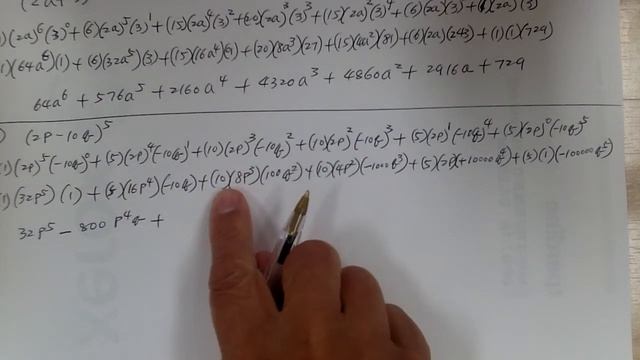 )(2a)⁶(3)⁰+(6)(2a)⁵(3)¹+(15)(2a)⁴(3)²+(20)(2a)³(3)³+(15)(2a)²(3)⁴+(6)(2a)(3)
1)(64a⁶)(1)+(6)(32a⁵)(3)+(15)(16a⁴)(9)+(20)(8a³)(27)+(15)(4a²)(81)+(6)(2a)(243)+(1)(1)(729)
64a⁶+576a⁵+2160a⁴+4320a³+4860a²+2916a+729
) (2P-10q)⁵
(1)(2P)⁵(-10q)⁰+(5)(2P)⁴(-10q)¹+(10)(2P)³(-10q)²+(10)(2P)²(-10q)³+(5)(2P)¹(-10q)⁴+(5)(2P)⁰(-10q)⁵
1)(32P⁵)(1)+(5)(16P⁴)(-10q)+(10)(8P³)(100q²)+(10)(4P²)(-1000q³)+(5)(2P)(+10000q⁴)+(5)(1)(-100000q⁵)
32P⁵-800P⁴q+